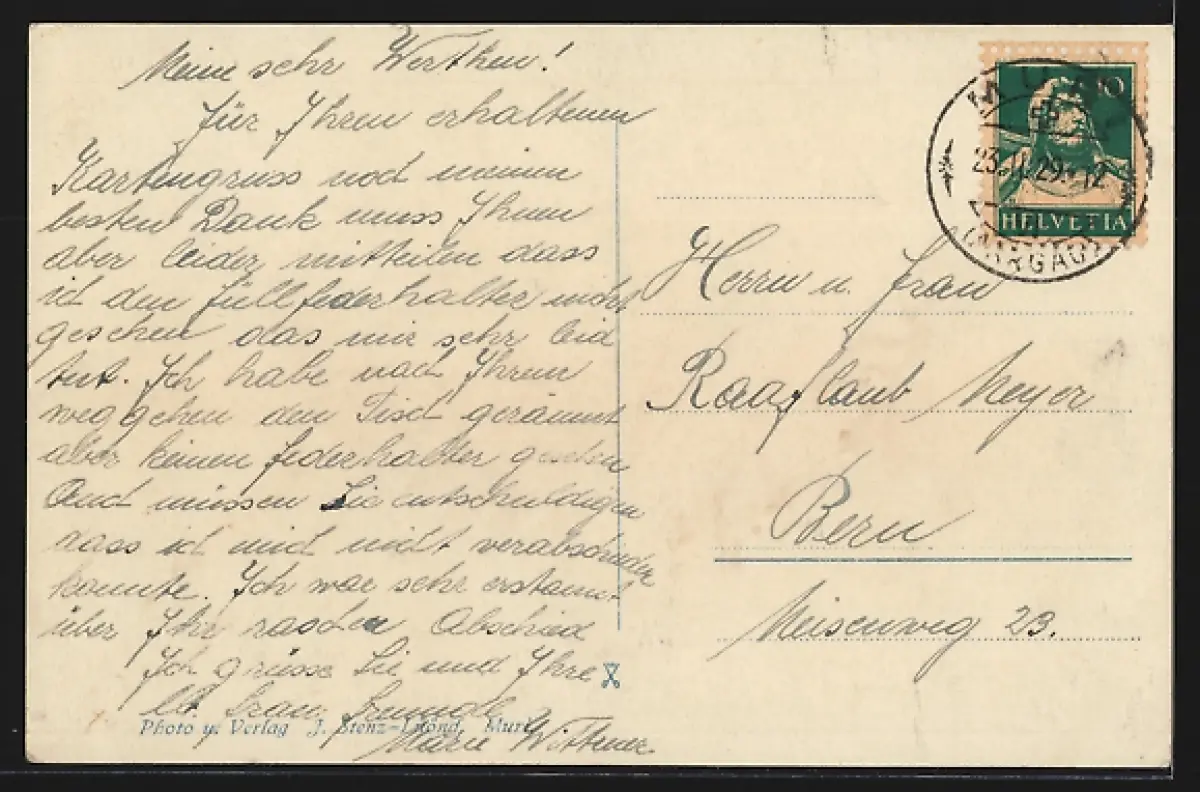 Meine sehr Werthen!
Für Ihren erhaltenen
Kartengruss noch meinen
besten Dank muss Ihnen
aber leider mitteilen dass
ich den Füllfederhalter nicht
gesehen das mir sehr leid
tut. Ich habe nach Ihrem
weggehen den Tisch geräumt
aber keinen Federhalter gesehen
Auch müssen Sie entschuldigen
dass ich mich nicht verabschieden
konnte. Ich war sehr erstaunt
über Ihr raschen Abschied
Ich grüsse Sie und Ihre
lb. Frau
Marie Wittmer
Photo u. Verlag J. Stenz- Muri
10
HELVETIA
MURI
23. 29. 12
(AARGAU)
Herrn u. Frau
Raaflaub Meyer
Bern
Meisenweg 23.